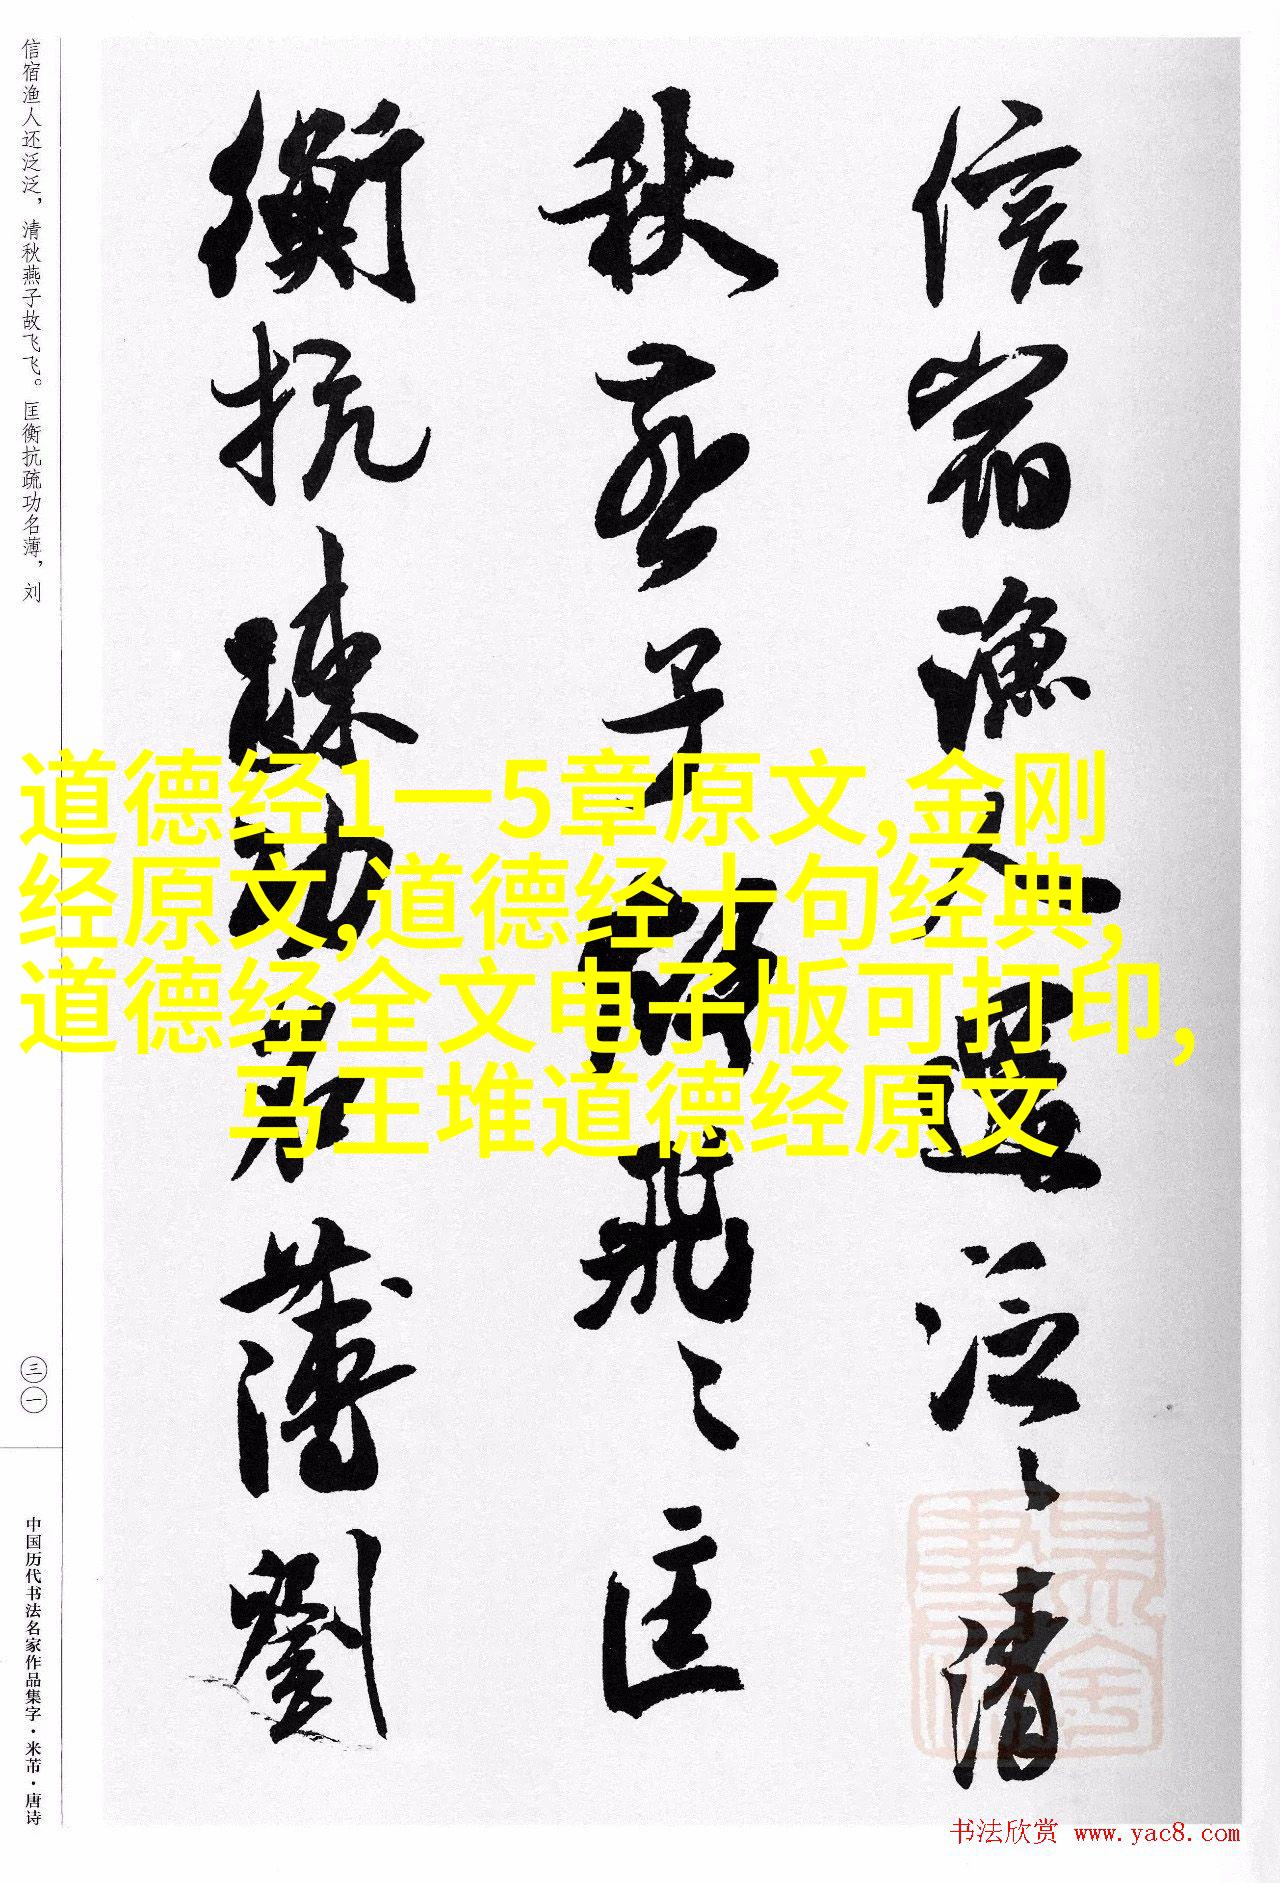 信宿渔人还泛泛，清秋燕子故飞飞。匡衡抗疏功名薄，刘
三一
中国历代书法名家作品集字·米芾·唐诗
信宿漁人還泛〻清
秋燕子故飛〻匡
衡抗疏功名薄劉
道德经1一5章原文,金刚
经原文,道德经十句经典,
道德经全文电子版可打印,
马王堆道德经原文
书法欣赏 www.yac8.com